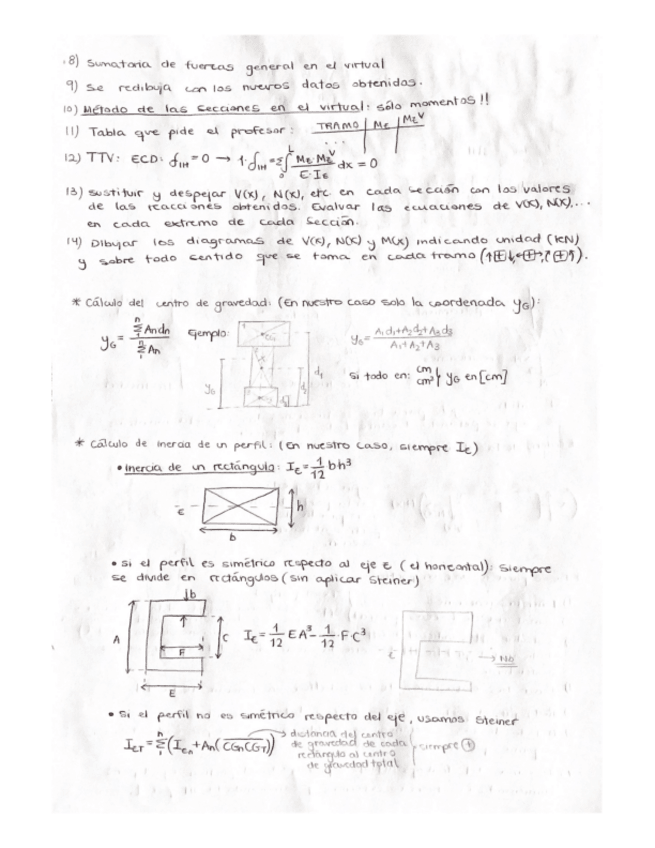 8) Sumatoria de fuerzas general en el virtual
9) Se redibuja con los nuevos datos obtenidos.
10) Método de las secciones en el virtual: sólo momentos!!
11) Tabla que pide el profesor: TRAMO | Mε | Mε^V
...
12) TTV: ECD: δ1H = 0 → 1·δ1H = Σ∫₀^L Mε·Mε^V / E·Iε dx = 0
13) Sustituir y despejar V(x), N(x), etc en cada sección con los valores
de las reacciones obtenidos. Evaluar las ecuaciones de V(x), N(x),...
en cada extremo de cada sección.
14) Dibujar los diagramas de V(x), N(x) y M(x) indicando unidad (kN)
y sobre todo sentido que se toma en cada tramo (↑⊞↓, ←⊞→, ⊞).
* Cálculo del centro de gravedad: (En nuestro caso solo la coordenada yG):
yG = Σ₁ⁿ An dn / Σ₁ⁿ An Ejemplo: yG = A1d1+A2d2+A3d3 / A1+A2+A3
yG d1
Si todo en: cm cm² } yG en [cm]
* Cálculo de inercia de un perfil: (En nuestro caso, siempre Iε)
• Inercia de un rectángulo: Iε = 1/12 bh³
ε h
b
• Si el perfil es simétrico respecto al eje ε (el horizontal): Siempre
se divide en rectángulos (sin aplicar Steiner)
b
A F C Iε = 1/12 EA³ - 1/12 ·F·C³ ε → No
E
• Si el perfil no es simétrico respecto del eje, usamos Steiner
IεT = Σ₁ⁿ (Iεn + An(CGnCGT)) → distancia del centro
de gravedad de cada
rectángulo al centro
de gravedad total
siempre ⊕